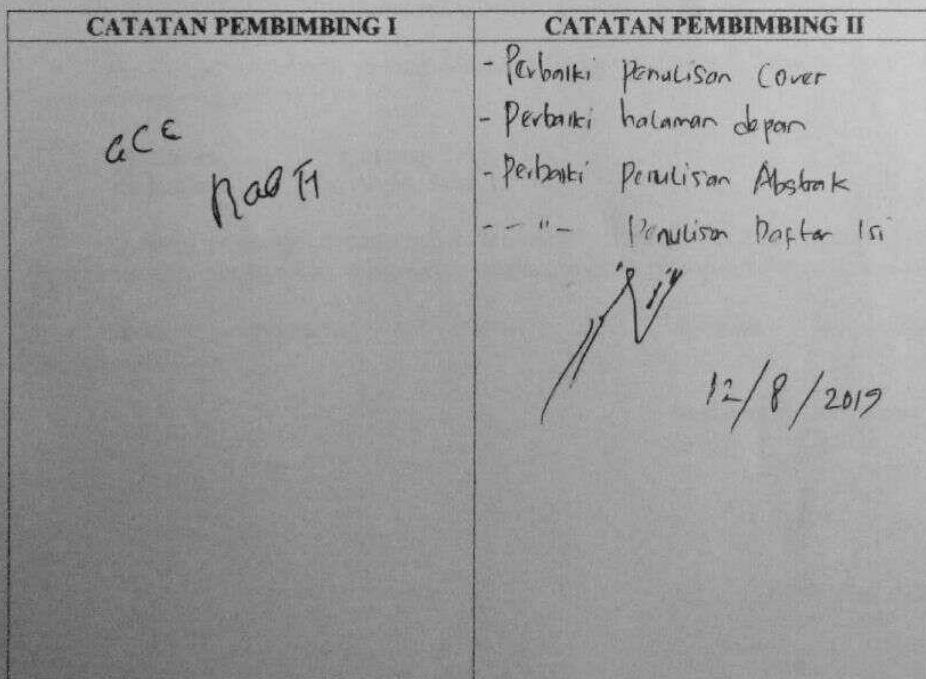 CATATAN PEMBIMBING I
acc
CATATAN PEMBIMBING II
- Perbaiki Penulisan Cover
- Perbaiki halaman depan
- Perbaiki Penulisan Abstrak
- - " - Penulisan Daftar Isi
12/8/2019